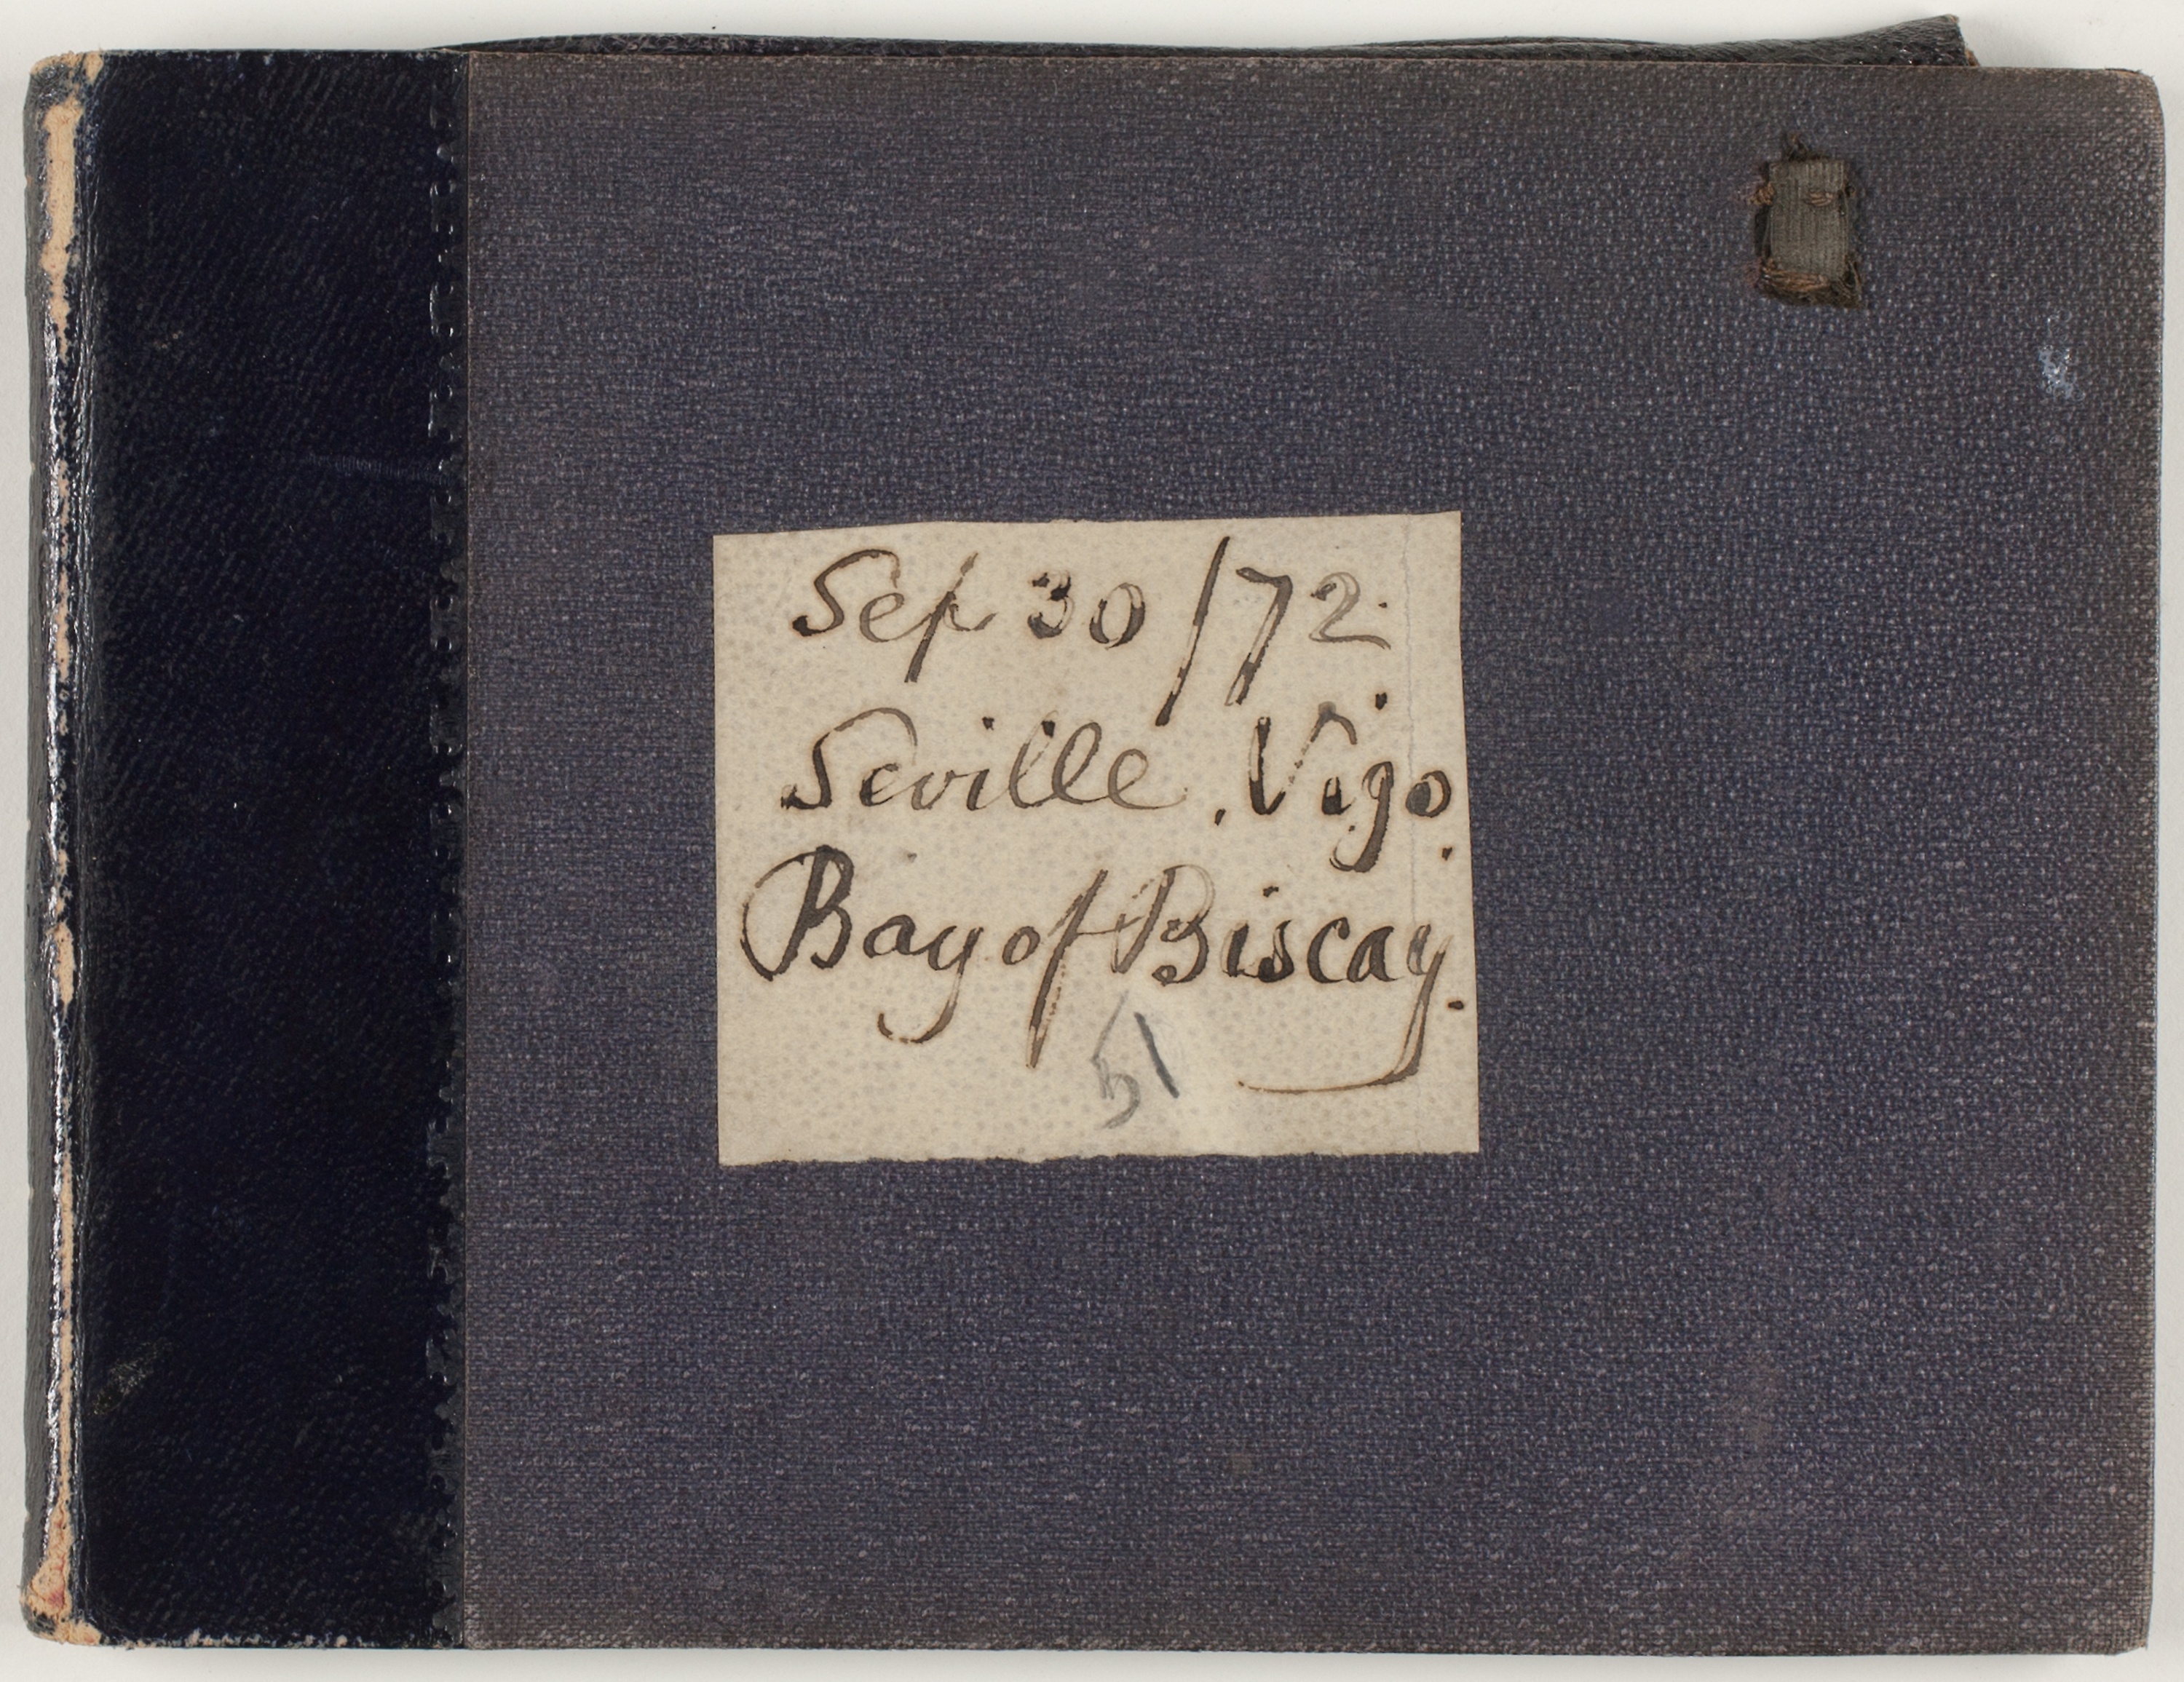 Sep 30/72.
Seville. Vigo.
Bay of Biscay.
51